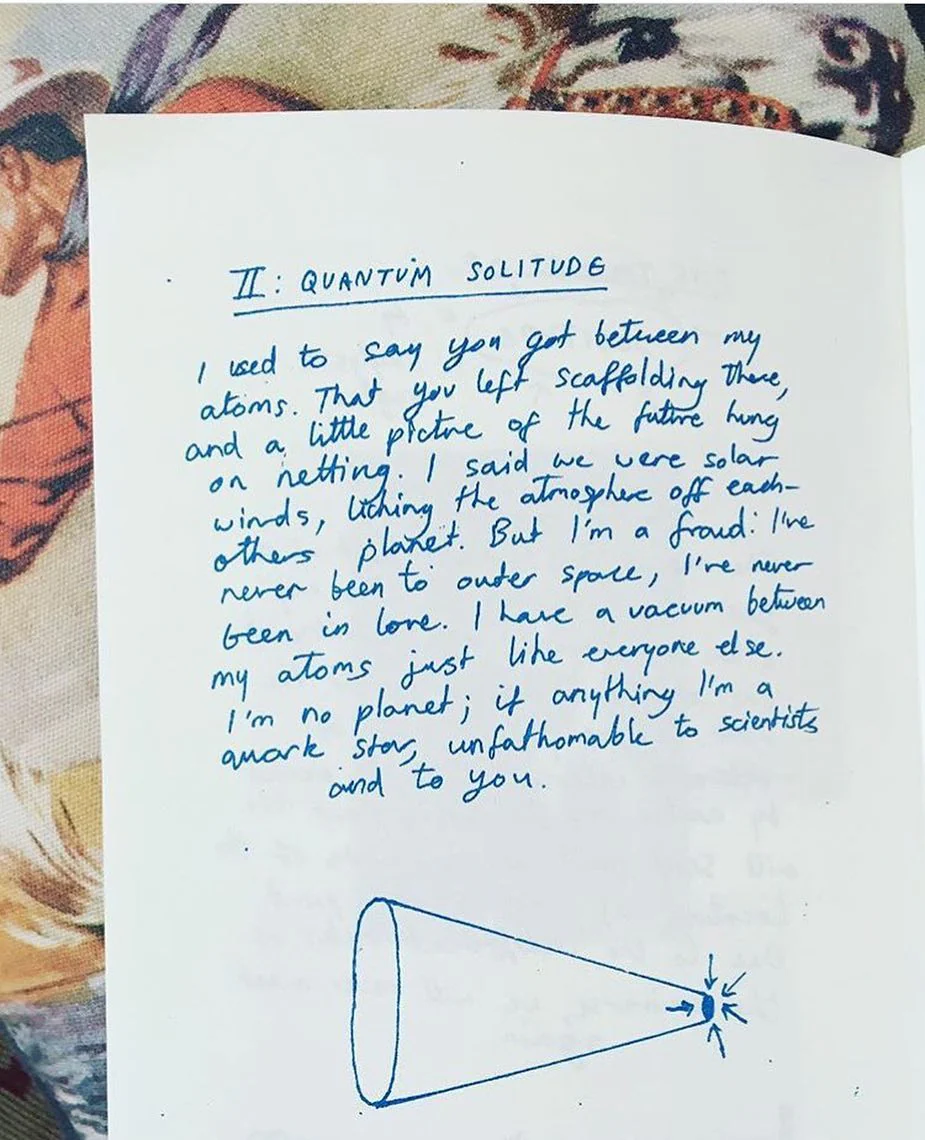 II: QUANTUM SOLITUDE
I used to say you got between my
atoms. That you left scaffolding there,
and a little picture of the future hung
on netting. I said we were solar
winds, licking the atmosphere off each-
others planet. But I'm a fraud: I've
never been to outer space, I've never
been in love. I have a vacuum between
my atoms just like everyone else.
I'm no planet; if anything I'm a
quark star, unfathomable to scientists
and to you.